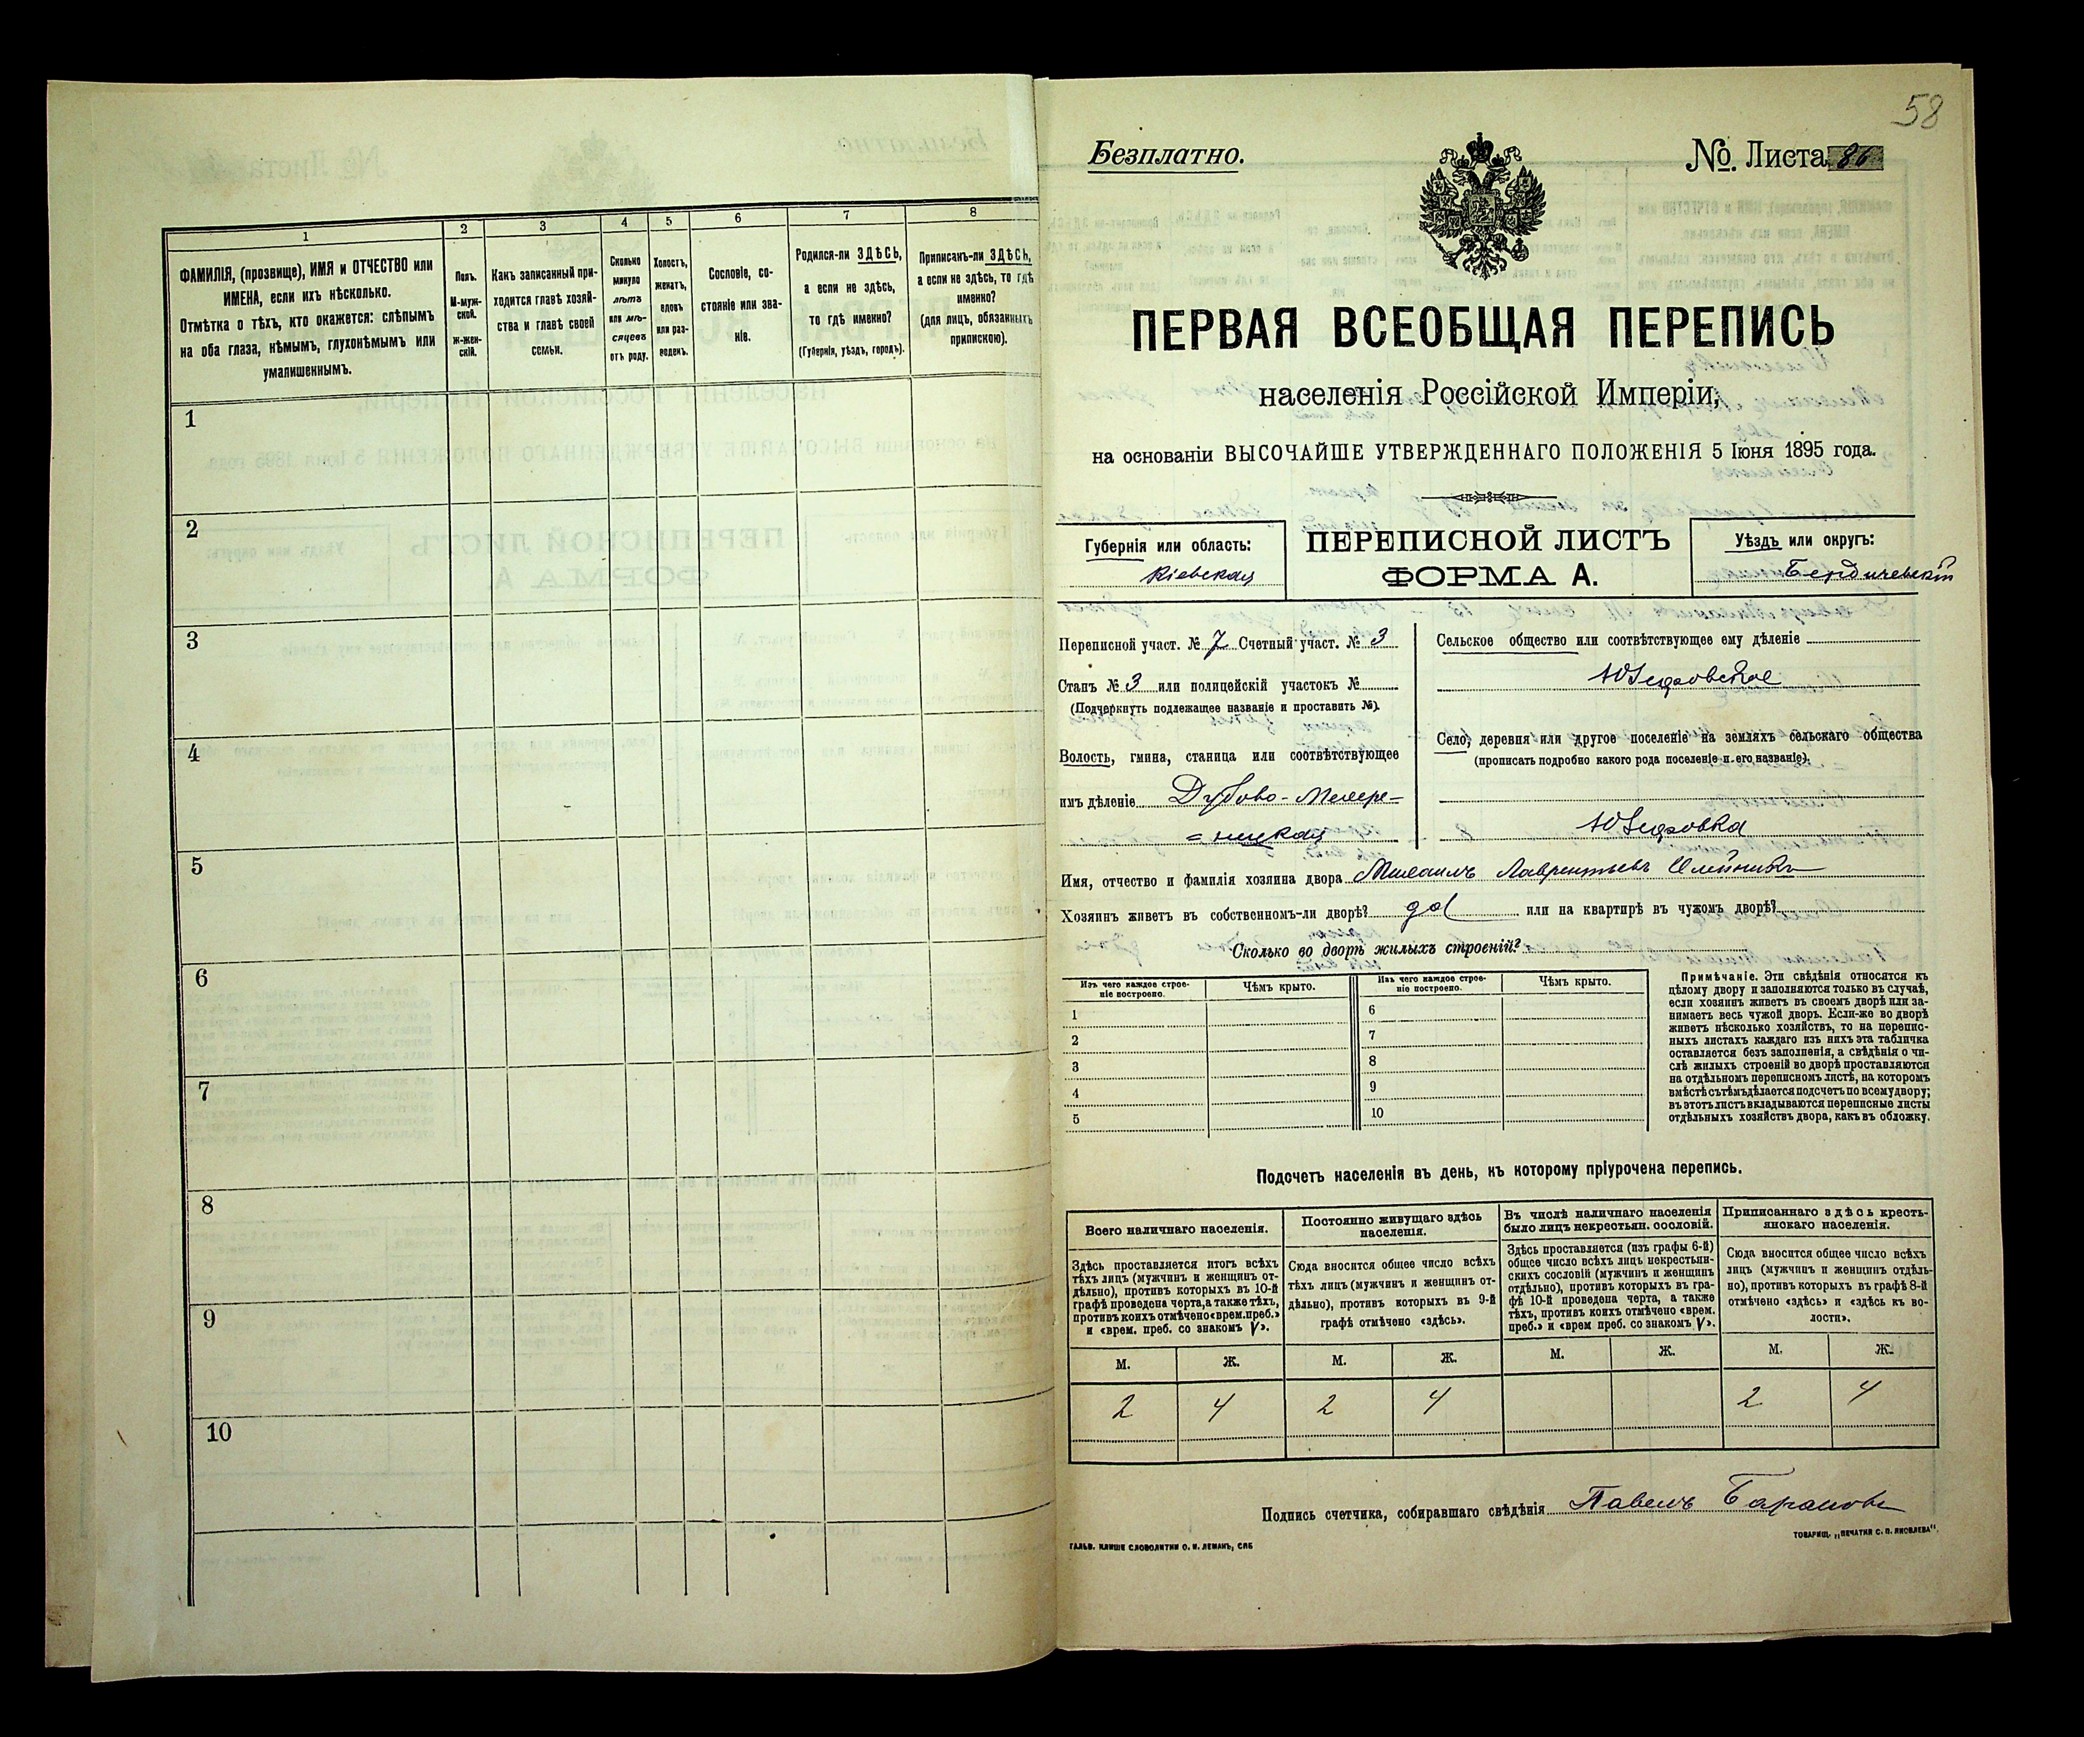 1
2
3
4
5
6
7
8
ФАМИЛІЯ, (прозвище), ИМЯ и ОТЧЕСТВО или
ИМЕНА, если ихъ нѣсколько.
Отмѣтка о тѣхъ, кто окажется: слѣпымъ
на оба глаза, нѣмымъ, глухонѣмымъ или
умалишеннымъ.
Полъ.
М-муж-
ской.
Ж-жен-
скій.
Какъ записанный при-
ходится главѣ хозяй-
ства и главѣ своей
семьи.
Сколько
минуло
лѣтъ
или мѣ-
сяцевъ
отъ роду.
Холостъ,
женатъ,
вдовъ
или раз-
веденъ.
Сословіе, со-
стояніе или зва-
ніе.
Родился-ли ЗДѢСЬ,
а если не здѣсь,
то гдѣ именно?
(Губернія, уѣздъ, городъ).
Приписанъ-ли ЗДѢСЬ,
а если не здѣсь, то гдѣ
именно?
(для лицъ, обязанныхъ
припискою).
1
2
3
4
5
6
7
8
9
10
58
Безплатно.
№. Листа 86
ПЕРВАЯ ВСЕОБЩАЯ ПЕРЕПИСЬ
населенія Россійской Имперіи,
на основаніи ВЫСОЧАЙШЕ УТВЕРЖДЕННАГО ПОЛОЖЕНІЯ 5 Іюня 1895 года.
Губернія или область:
Кіевская
ПЕРЕПИСНОЙ ЛИСТЪ
ФОРМА А.
Уѣздъ или округъ:
Бердичевскій
Переписной участ. № 7 Счетный участ. № 3
Станъ № 3 или полицейскій участокъ №
(Подчеркнуть подлежащее названіе и проставить №).
Волость, гмина, станица или соотвѣтствующее
имъ дѣленіе Дубово-Мехере-
=нецкая
Сельское общество или соотвѣтствующее ему дѣленіе
Юзефовское
Село, деревня или другое поселеніе на земляхъ сельскаго общества
(прописать подробно какого рода поселеніе и его названіе).
Юзефовка
Имя, отчество и фамилія хозяина двора Михаилъ Лаврентьевъ Олейникъ
Хозяинъ живетъ въ собственномъ-ли дворѣ? да или на квартирѣ въ чужомъ дворѣ?
Сколько во дворѣ жилыхъ строеній?
Изъ чего каждое строе-
ніе построено.
Чѣмъ крыто.
Изъ чего каждое строе-
ніе построено.
Чѣмъ крыто.
1
2
3
4
5
6
7
8
9
10
Примѣчаніе. Эти свѣдѣнія относятся къ
цѣлому двору и заполняются только въ случаѣ,
если хозяинъ живетъ въ своемъ дворѣ или за-
нимаетъ весь чужой дворъ. Если-же во дворѣ
живетъ нѣсколько хозяйствъ, то на перепис-
ныхъ листахъ каждаго изъ нихъ эта табличка
оставляется безъ заполненія, а свѣдѣнія о чи-
слѣ жилыхъ строеній во дворѣ проставляются
на отдѣльномъ переписномъ листѣ, на которомъ
вмѣстѣ съ тѣмъ дѣлается подсчетъ по всему двору;
въ этотъ листъ вкладываются переписные листы
отдѣльныхъ хозяйствъ двора, какъ въ обложку.
Подсчетъ населенія въ день, къ которому пріурочена перепись.
Всего наличнаго населенія.
Здѣсь проставляется итогъ всѣхъ
тѣхъ лицъ (мужчинъ и женщинъ от-
дѣльно), противъ которыхъ въ 10-й
графѣ проведена черта, а также тѣхъ,
противъ коихъ отмѣчено «врем. преб.»
и «врем. преб. со знакомъ V».
Постоянно живущаго здѣсь
населенія.
Сюда вносится общее число всѣхъ
тѣхъ лицъ (мужчинъ и женщинъ от-
дѣльно), противъ которыхъ въ 9-й
графѣ отмѣчено «здѣсь».
Въ числѣ наличнаго населенія
было лицъ некрестьян. сословій.
Здѣсь проставляется (изъ графы 6-й)
общее число всѣхъ лицъ некрестьян-
скихъ сословій (мужчинъ и женщинъ
отдѣльно), противъ которыхъ въ гра-
фѣ 10-й проведена черта, а также
тѣхъ, противъ коихъ отмѣчено «врем.
преб.» и «врем преб. со знакомъ V».
Приписаннаго здѣсь кресть-
янскаго населенія.
Сюда вносится общее число всѣхъ
лицъ (мужчинъ и женщинъ отдѣль-
но), противъ которыхъ въ графѣ 8-й
отмѣчено «здѣсь» и «здѣсь къ во-
лости».
М. Ж. М. Ж. М. Ж. М. Ж.
2 4 2 4 2 4
Подпись счетчика, собиравшаго свѣдѣнія Павелъ Барановъ
ГАЛЬВ. КЛИШЕ СЛОВОЛИТНИ О. И. ЛЕМАНЪ, СПБ
ТОВАРИЩ. „ПЕЧАТНЯ С. П. ЯКОВЛЕВА“.